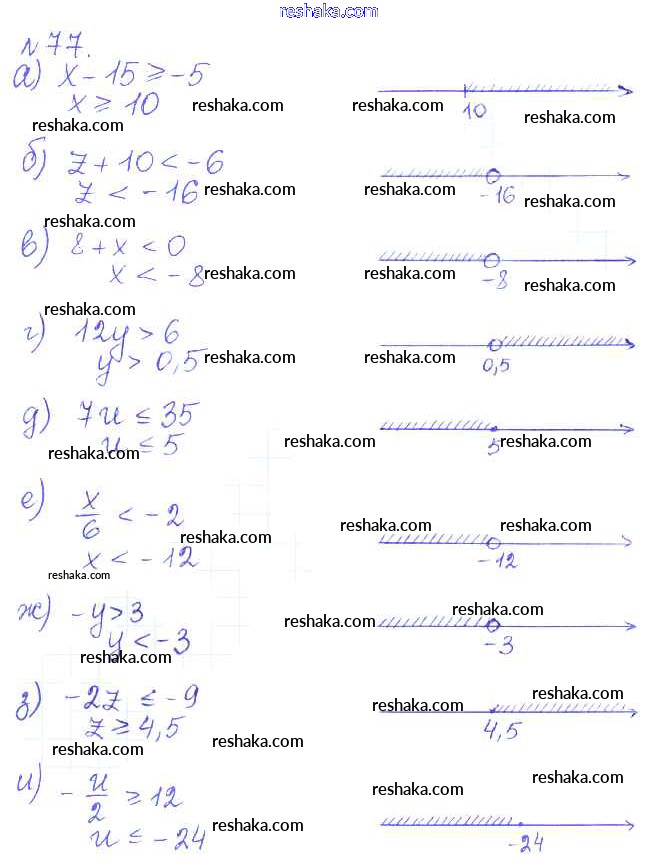 reshaka.com
№77.
а) x - 15 ≥ -5
x ≥ 10 reshaka.com reshaka.com 10 reshaka.com
reshaka.com
б) z + 10 < -6
z < -16 reshaka.com -16 reshaka.com
reshaka.com
в) 8 + x < 0
x < -8 reshaka.com reshaka.com -8 reshaka.com
reshaka.com
г) 12y > 6
y > 0,5 reshaka.com 0,5 reshaka.com
д) 7u ≤ 35
u ≤ 5 reshaka.com 5 reshaka.com
reshaka.com
е) x/6 < -2 reshaka.com reshaka.com reshaka.com
x < -12 -12
reshaka.com
ж) -y > 3 reshaka.com reshaka.com
y < -3 -3
reshaka.com
з) -2z ≤ -9 reshaka.com reshaka.com
z ≥ 4,5 4,5
reshaka.com reshaka.com
и) -u/2 ≥ 12 reshaka.com reshaka.com
u ≤ -24 reshaka.com -24
reshaka.com reshaka.com